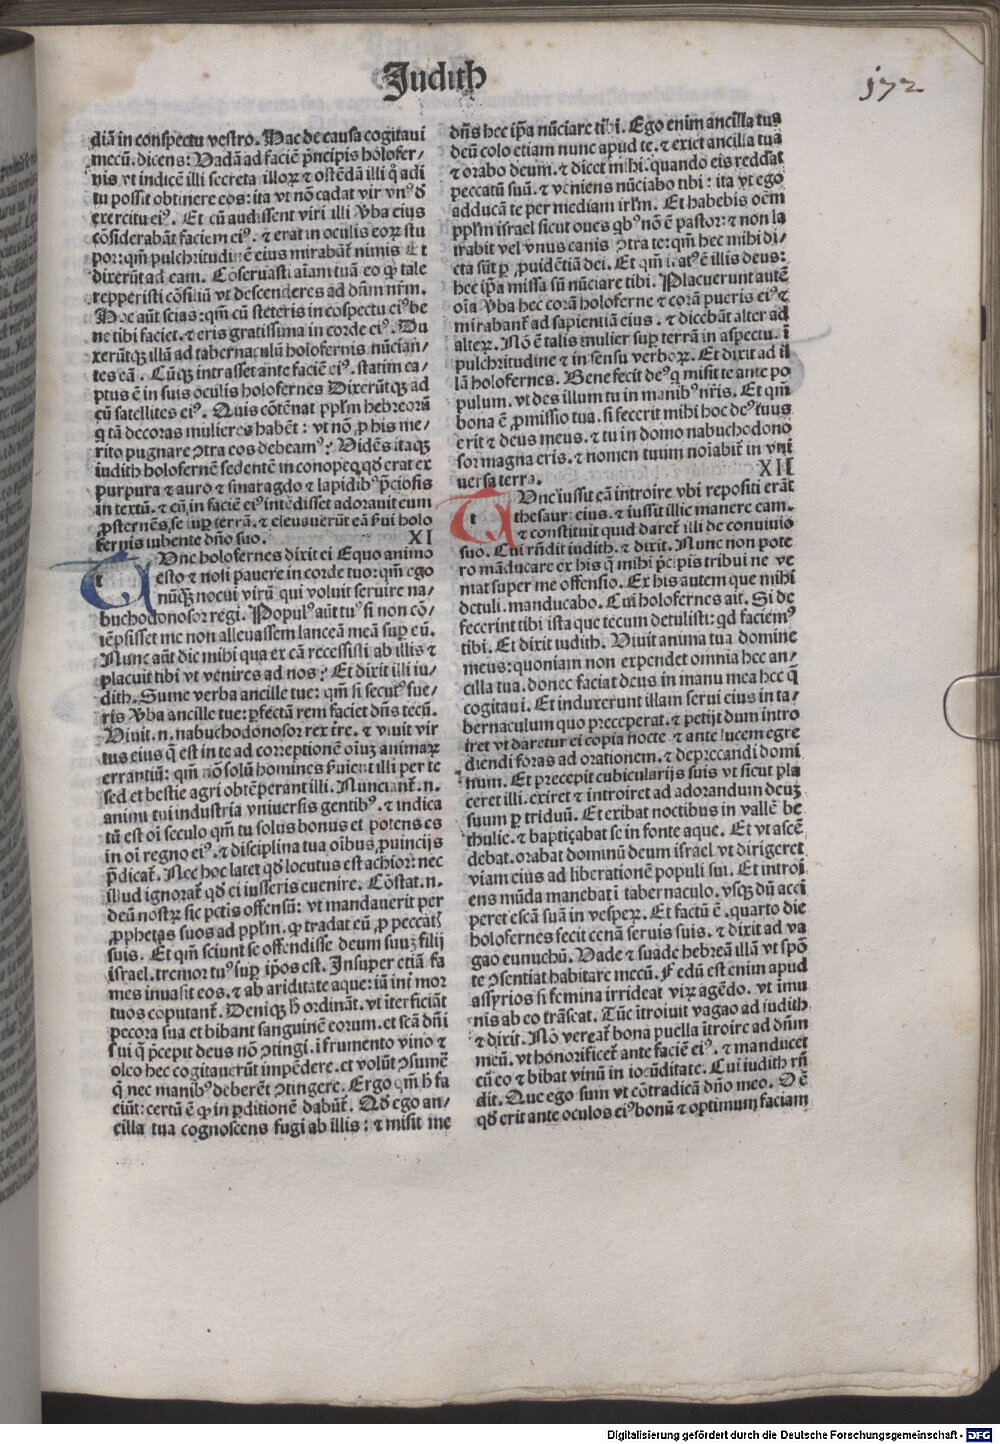 Judith
172
diā in conspectu vestro. Hac de causa cogitaui
mecū. dicens: Vadā ad faciē p̄ncipis holofer/
nis vt indicē illi secreta illoꝝ ⁊ ostēdā illi q̊ adi
tu possit obtinere eos: ita vt nō cadat vir vnꝰ d̓
exercitu eiꝰ. Et cū audissent viri illi v̓ba eius
cōsiderabāt faciem eiꝰ. ⁊ erat in oculis eoꝝ stu
por: qm̄ pulchritudinē eius mirabāt̄ nimis Et
dixerūt ad eam. Cōseruasti aīam tuā eo ꝙ tale
repperisti cōsiliū vt descenderes ad dn̄m nr̄m.
Hoc aūt scias: qm̄ cū steteris in cōspectu eiꝰ be
ne tibi faciet. ⁊ eris gratissima in corde eiꝰ. Du
xerūtqꝫ illā ad tabernaculū holofernis nūcian/
tes eā. Cūqꝫ intrasset ante faciē eiꝰ. statim ca/
ptus ē in suis oculis holofernes Dixerūtqꝫ ad
eū satellites eiꝰ. Quis cōtēnat pp̄lm hebreorū
q̇ tā decoras mulieres habēt: vt nō ꝓ his me/
rito pugnare ꝯtra eos debeamꝰ? Vidēs itaqꝫ
iudith holofernē sedentē in conopeo. qd̓ erat ex
purpura ⁊ auro ⁊ smaragdo ⁊ lapidibꝰ p̄ciosis
in textū. ⁊ cū in faciē eiꝰ intēdisset adorauit eum
ꝓsternēs se suꝑ terrā. ⁊ eleuauerūt eā ẜui holo
fernis iubente dn̄o suo. XI
Vnc holofernes dixit ei Equo animo
esto ⁊ noli pauere in corde tuo: qm̄ ego
nūqꝫ nocui virū qui voluit seruire na/
buchodonosor regi. Populꝰ aūt tuꝰ si non cō/
tēpsisset me non alleuassem lanceā meā suꝑ eū.
Nunc aūt dic mihi qua ex cā recessisti ab illis ⁊
placuit tibi vt venires ad nos? Et dixit illi iu/
dith. Sume verba ancille tue: qm̄ si secutꝰ fue/
ris v̓ba ancille tue: ꝑfectā rem faciet dn̄s tecū.
Viuit .n. nabuchodonosor rex tr̄e. ⁊ viuit vir
tus eius q̄ est in te ad correptionē oīuꝫ animaꝝ
errantiū: qm̄ nō solū homines ẜuient illi per te
sed et bestie agri obtēperant illi. Nunciant̄ .n.
animi tui industria vniuersis gentibꝰ. ⁊ indica
tū est oī seculo qm̄ tu solus bonus et potens es
in oī regno eiꝰ. ⁊ disciplina tua oībus ꝓuincijs
p̄dicat̄. Nec hoc latet qd̓ locutus est achior: nec
illud ignorat̄ qd̓ ei iusseris euenire. Cōstat .n.
deū nostrꝝ sic pctīs offensū: vt mandauerit per
ꝓphetas suos ad pp̄lm. ꝙ tradat eū ꝓ peccatꝭ
suis. Et qm̄ sciunt se offendisse deum suuꝫ filij
israel. tremor tuꝰ suꝑ ip̄os est. Insuper etiā fa
mes inuasit eos. ⁊ ab ariditate aque: iā int̄ mor
tuos coputant̄. Deniqꝫ h̓ ordināt. vt īterficiāt
pecora sua et bibant sanguinē eorum. et scā dn̄i
sui q̄ p̄cepit deus nō ꝯtingi. ī frumento vino ⁊
oleo hec cogitauerūt impēdere. et volūt ꝯsumē̄
q̄ nec manibꝰ deberēt ꝯtingere. Ergo qm̄ h̓ fa
ciūt: certū ē ꝙ in ꝑditionē dabūt̄. Qd̓ ego an/
cilla tua cognoscens fugi ab illis: ⁊ misit me
dn̄s hec ip̄a nūciare tibi. Ego enim ancilla tua
deū colo etiam nunc apud te. ⁊ exiet ancilla tua
⁊ orabo deum. ⁊ dicet mihi. quando eis reddat
peccatū suū. ⁊ veniens nūciabo tibi: ita vt ego
adducā te per mediam irl̄m. Et habebis oēm
pp̄lm israel sicut oues qbꝰ nō ē pastor: ⁊ non la
trabit vel vnus canis ꝯtra te: qm̄ hec mihi di/
cta sūt ꝑ ꝓuidētiā dei. Et qm̄ iratꝰ ē illis deus:
hec ip̄a missa sū nūciare tibi. Placuerunt autē
oīa v̓ba hec corā holoferne ⁊ corā pueris eiꝰ ⁊
mirabant̄ ad sapientiā eius. ⁊ dicebāt alter ad
alteꝝ. Nō ē talis mulier suꝑ terrā in aspectu. ī
pulchritudine ⁊ in sensu verboꝝ. Et dixit ad il
lā holofernes. Bene fecit deꝰ q̇ misit te ante po
pulum. vt des illum tu in manibꝰ nr̄is. Et qm̄
bona ē ꝓmissio tua. si fecerit mihi hoc deꝰ tuus
erit ⁊ deus meus. ⁊ tu in domo nabuchodono
sor magna eris. ⁊ nomen tuum noīabit̄ in vni
uersa terra. XII
Vnc iussit eā introire vbi repositi erāt
thesauri eius. ⁊ iussit illic manere eam.
⁊ constituit quid daret̄ illi de conuiuio
suo. Cui rn̄dit iudith. ⁊ dixit. Nunc non pote
ro māducare ex his q̄ mihi p̄cipis tribui ne ve
niat super me offensio. Ex his autem que mihi
detuli. manducabo. Cui holofernes ait. Si de
fecerint tibi ista que tecum detulisti: qd faciemꝰ
tibi. Et dixit iudith. Viuit anima tua domine
meus: quoniam non expendet omnia hec an/
cilla tua. donec faciat deus in manu mea hec q̄
cogitaui. Et induxerunt illam serui eius in ta/
bernaculum quo preceperat. ⁊ petijt dum intro
iret vt daretur ei copia nocte ⁊ ante lucem egre
diendi foras ad orationem. ⁊ deprecandi domi
num. Et precepit cubicularijs suis vt sicut pla
ceret illi. exiret ⁊ introiret ad adorandum deuꝫ
suum ꝑ triduū. Et exibat noctibus in vallē be
thulie. ⁊ baptiçabat se in fonte aque. Et vt ascē
debat. orabat dominū deum israel vt dirigeret
viam eius ad liberationē populi sui. Et introi
ens mūda manebat ī tabernaculo. vsqꝫ dū acci
peret escā suā in vespeꝝ. Et factū ē. quarto die
holofernes fecit cenā seruis suis. ⁊ dixit ad va
gao eunuchū. Vade ⁊ suade hebreā illā vt spō
te ꝯsentiat habitare mecū. Fedū est enim apud
assyrios si femina irrideat viꝝ agēdo. vt īmu
nis ab eo trāseat. Tūc ītroiuit vagao ad iudith
⁊ dixit. Nō vereat̄ bona puella ītroire ad dn̄m
meū. vt honorificet̄ ante faciē eiꝰ. ⁊ manducet
cū eo ⁊ bibat vinū in iocūditate. Cui iudith rn̄
dit. Que ego sum vt cōtradicā dn̄o meo. Oē
qd̓ erit ante oculos eiꝰ bonū ⁊ optimum faciam
Digitalisierung gefördert durch die Deutsche Forschungsgemeinschaft - DFG